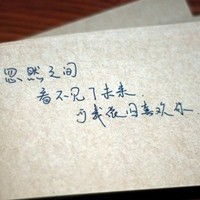 忽然之间
看不见了未来.
可我依旧喜欢你